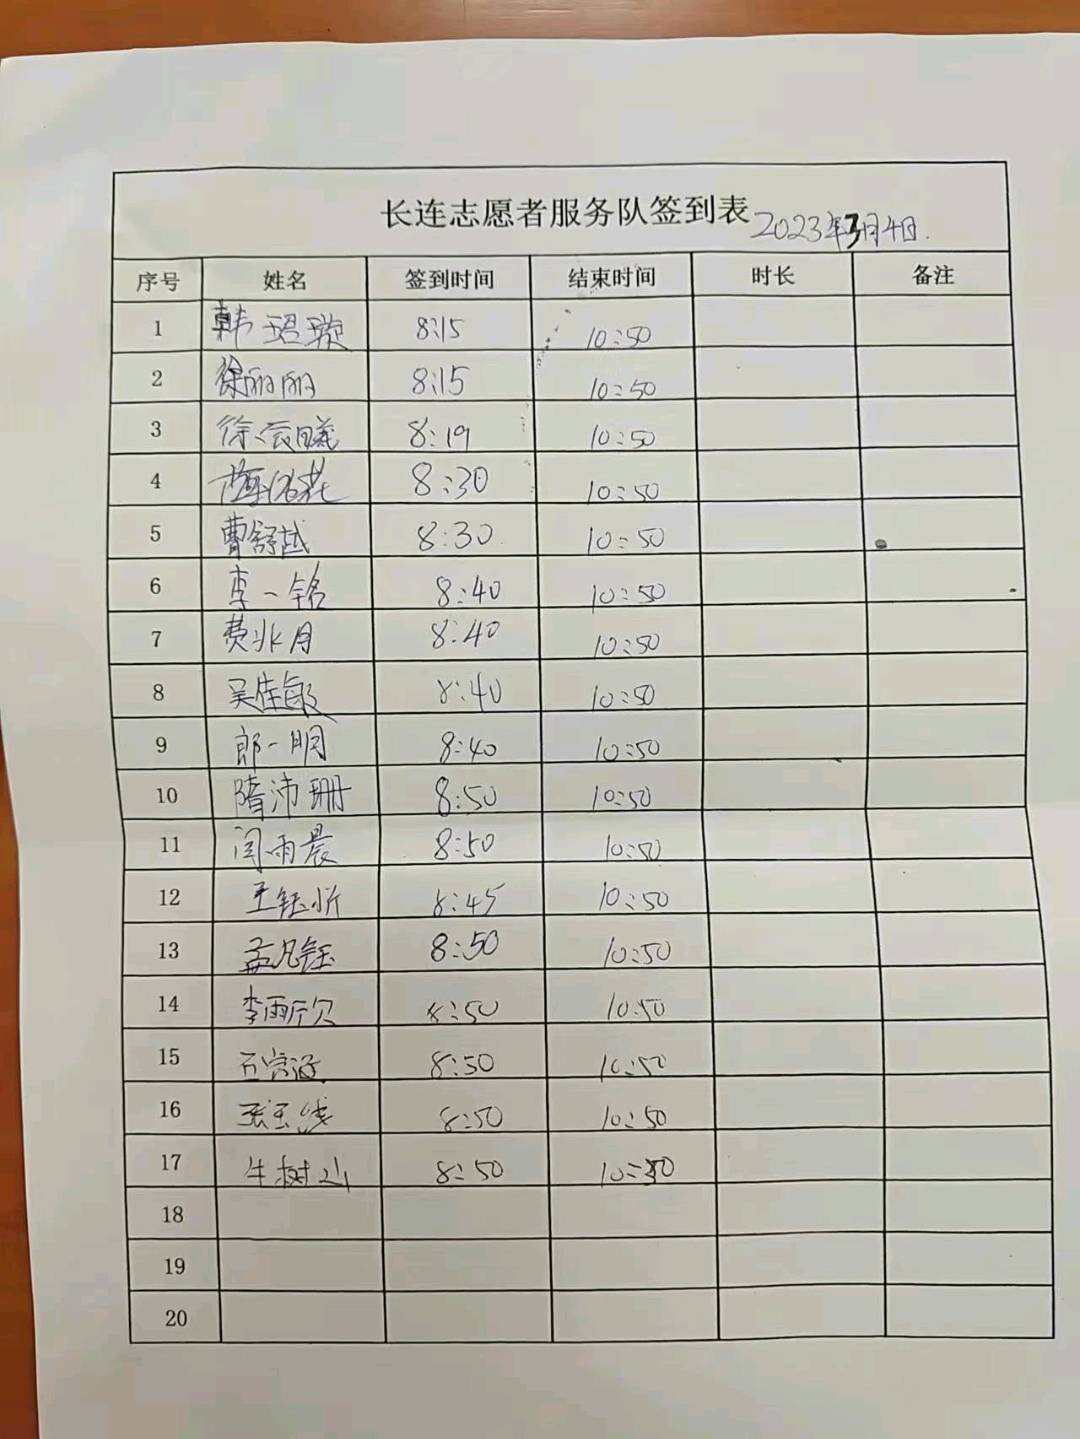 长连志愿者服务队签到表 2023年3月4日.
序号 姓名 签到时间 结束时间 时长 备注
1 韩珺璇 8:15 10:50
2 徐丽丽 8:15 10:50
3 徐辰曦 8:19 10:50
4 8:30 10:50
5 曹舒越 8:30 10:50
6 李一铭 8:40 10:50
7 费兆月 8:40 10:50
8 吴佳毅 8:40 10:50
9 郎一明 8:40 10:50
10 隋沛珊 8:50 10:50
11 闫雨晨 8:50 10:50
12 王钰忻 8:45 10:50
13 孟凡钰 8:50 10:50
14 李雨欣 8:50 10:50
15 8:50 10:50
16 8:50 10:50
17 牛树山 8:50 10:50
18
19
20